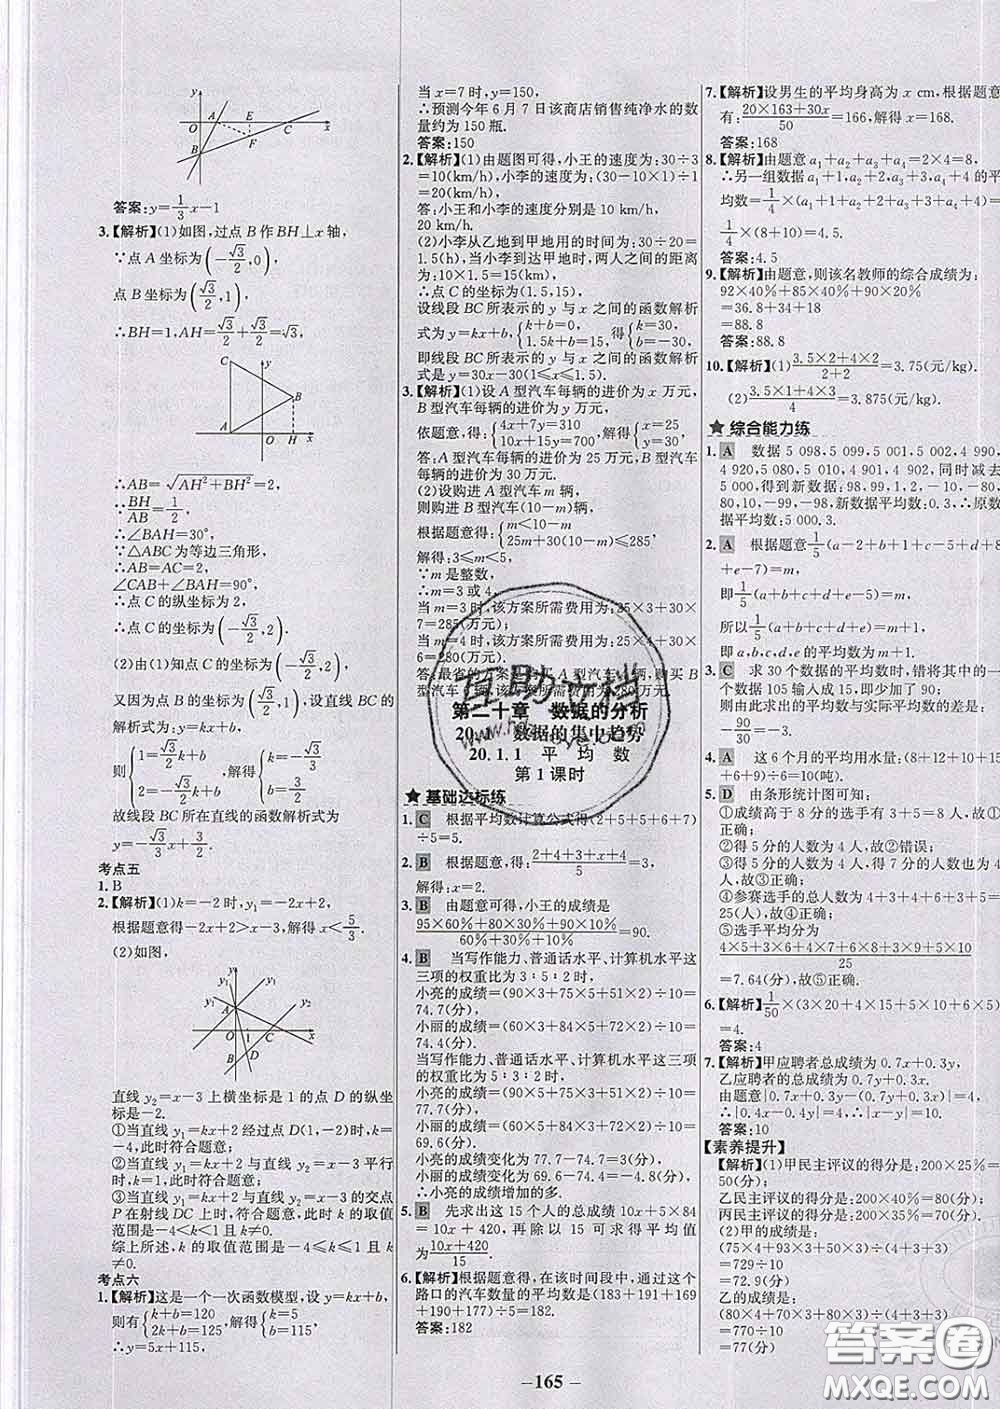 答案:y=1/3x-1
3.【解析】(1)如图,过点B作BH⊥x轴,
∵点A坐标为(-√3/2,0),
点B坐标为(√3/2,1),
∴BH=1,AH=√3/2+√3/2=√3,
∴AB=√(AH²+BH²)=2,
∵BH/AB=1/2,
∴∠BAH=30°,
∵△ABC为等边三角形,
∴AB=AC=2,
∠CAB+∠BAH=90°,
∴点C的纵坐标为2,
∴点C的坐标为(-√3/2,2).
(2)由(1)知点C的坐标为(-√3/2,2),
又因为点B的坐标为(√3/2,1),设直线BC的
解析式为:y=kx+b,
则{1=√3/2k+b, 2=-√3/2k+b,解得{k=-√3/3, b=3/2,
故线段BC所在直线的函数解析式为
y=-√3/3x+3/2.
考点五
1.B
2.【解析】(1)k=-2时,y₁=-2x+2,
根据题意得-2x+2>x-3,解得x<5/3.
(2)如图,
直线y₂=x-3上横坐标是1的点D的纵坐
标是-2.
①当直线y₁=kx+2经过点D(1,-2)时,k=
-4,此时符合题意;
②当直线y₁=kx+2与直线y₂=x-3平行
时,k=1,此时符合题意;
③当直线y₁=kx+2与直线y₂=x-3的交点
P在射线DC上时,符合题意,此时k的取值
范围是-4<k<1且k≠0.
综上所述,k的取值范围是-4≤k≤1且k≠0.
考点六
1.【解析】这是一个一次函数模型,设y=kx+b,
则有{k+b=120, 2k+b=125,解得{k=5, b=115,
∴y=5x+115,
当x=7时,y=150,
∴预测今年6月7日该商店销售纯净水的数
量约为150瓶.
答案:150
2.【解析】(1)由题图可得,小王的速度为:30÷3
=10(km/h),小李的速度为:(30-10×1)÷1
=20(km/h),
答:小王和小李的速度分别是10 km/h,
20 km/h.
(2)小李从乙地到甲地用的时间为:30÷20=
1.5(h),当小李到达甲地时,两人之间的距离
为:10×1.5=15(km),
∴点C的坐标为(1.5,15),
设线段BC所表示的y与x之间的函数解析
式为y=kx+b,{k+b=0, 1.5k+b=15,得{k=30, b=-30,
即线段BC所表示的y与x之间的函数解析
式是y=30x-30(1≤x≤1.5).
3.【解析】(1)设A型汽车每辆的进价为x万元,
B型汽车每辆的进价为y万元,
依题意,得:{4x+7y=310 10x+15y=700,解得:{x=25 y=30.
答:A型汽车每辆的进价为25万元,B型汽车
每辆的进价为30万元.
(2)设购进A型汽车m辆,
则购进B型汽车(10-m)辆,
根据题意得:{m<10-m 25m+30(10-m)≤285,
解得:3≤m<5,
∵m是整数,
∴m=3或4,
当m=3时,该方案所需费用为:25×3+30×
7=285(万元);
当m=4时,该方案所需费用为:25×4+30×
6=280(万元).
答:最省的方案是购买A型汽车4辆,购买B
第二十章 数据的分析
20.1 数据的集中趋势
20.1.1 平均数
第1课时
★基础达标练
1.C 根据平均数计算公式得(2+5+5+6+7)
÷5=5.
2.B 根据题意,得:(2+4+3+x+4)/5=3,
解得:x=2.
3.B 由题意可得,小王的成绩是
(95×60%+80×30%+90×10%)/(60%+30%+10%)=90.
4.B 当写作能力、普通话水平、计算机水平这
三项的权重比为3:5:2时,
小亮的成绩=(90×3+75×5+51×2)÷10=
74.7(分),
小丽的成绩=(60×3+84×5+72×2)÷10=
74.4(分).
当写作能力、普通话水平、计算机水平这三项
的权重比为5:3:2时,
小亮的成绩=(90×5+75×3+51×2)÷10=
77.7(分),
小丽的成绩=(60×5+84×3+72×2)÷10=
69.6(分).
小亮的成绩变化为77.7-74.7=3(分),
小丽的成绩变化为69.6-74.4=-4.8(分),
∴小亮的成绩增加的多.
5.B 先求出这15个人的总成绩10x+5×84
=10x+420,再除以15可求得平均值
为(10x+420)/15.
6.【解析】根据题意得,在该时间段中,通过这个
路口的汽车数量的平均数是(183+191+169
+190+177)÷5=182.
答案:182
7.【解析】设男生的平均身高为x cm,根据题意
有:(20×163+30x)/50=166,解得x=168.
答案:168
8.【解析】由题意a₁+a₂+a₃+a₄=2×4=8,
∴另一组数据a₁+1,a₂+2,a₃+3,a₄+4的平
均数=1/4×(a₁+1+a₂+2+a₃+3+a₄+4)=
1/4×(8+10)=4.5.
答案:4.5
9.【解析】由题意,则该名教师的综合成绩为:
92×40%+85×40%+90×20%
=36.8+34+18
=88.8
答案:88.8
10.【解析】(1)(3.5×2+4×2)/(2+2)=3.75(元/kg)
(2)(3.5×1+4×3)/4=3.875(元/kg).
★综合能力练
1.A 数据5 098,5 099,5 001,5 002,4 990,
4 920,5 080,5 010,4 901,4 902,同时减去
5 000,得到新数据:98,99,1,2,-10,-80,
80,10,-99,-98,新数据平均数:0.3,∴原数
据平均数:5 000.3.
2.A 根据题意1/5(a-2+b+1+c+5+d+8
+e-7)=m,
即1/5(a+b+c+d+e+5)=m,
所以1/5(a+b+c+d+e)+1=m,
3.C 求30个数据的平均数时,错将其中的一
个数据105输入成15,即少加了90;
则由此求出的平均数与实际平均数的差是:
-90/30=-3.
4.A 这6个月的平均用水量:(8+12+10+15
+6+9)÷6=10(吨).
5.D 由条形统计图可知:
①成绩高于8分的选手有3+5=8人,故①
正确;
②得5分的人数为4人,故②错误;
③得5分的人数为4人,得7分的人数也为4
人,故③正确;
④参赛选手的总人数为4+3+4+6+3+5=
25(人),故④正确;
⑤选手平均分为
(4×5+3×6+4×7+6×8+3×9+5×10)/25
=7.64(分),故⑤正确.
6.【解析】1/50×(3×20+4×15+5×10+6×5)
=4.
答案:4
7.【解析】甲应聘者总成绩为0.7x+0.3y,
乙应聘者的总成绩为0.7y+0.3x.
由题意|0.7x+0.3y-(0.7y+0.3x)|=4,
∴|0.4x-0.4y|=4,∴|x-y|=10.
答案:10
【素养提升】
【解析】(1)甲民主评议的得分是:200×25%=
50(分);
乙民主评议的得分是:200×40%=80(分);
丙民主评议的得分是:200×35%=70(分).
(2)甲的成绩是:
(75×4+93×3+50×3)÷(4+3+3)
=729÷10
=72.9(分)
乙的成绩是:
(80×4+70×3+80×3)÷(4+3+3)
=770÷10
=77(分)
-165-
互助文档
答案圈
MXQE.COM